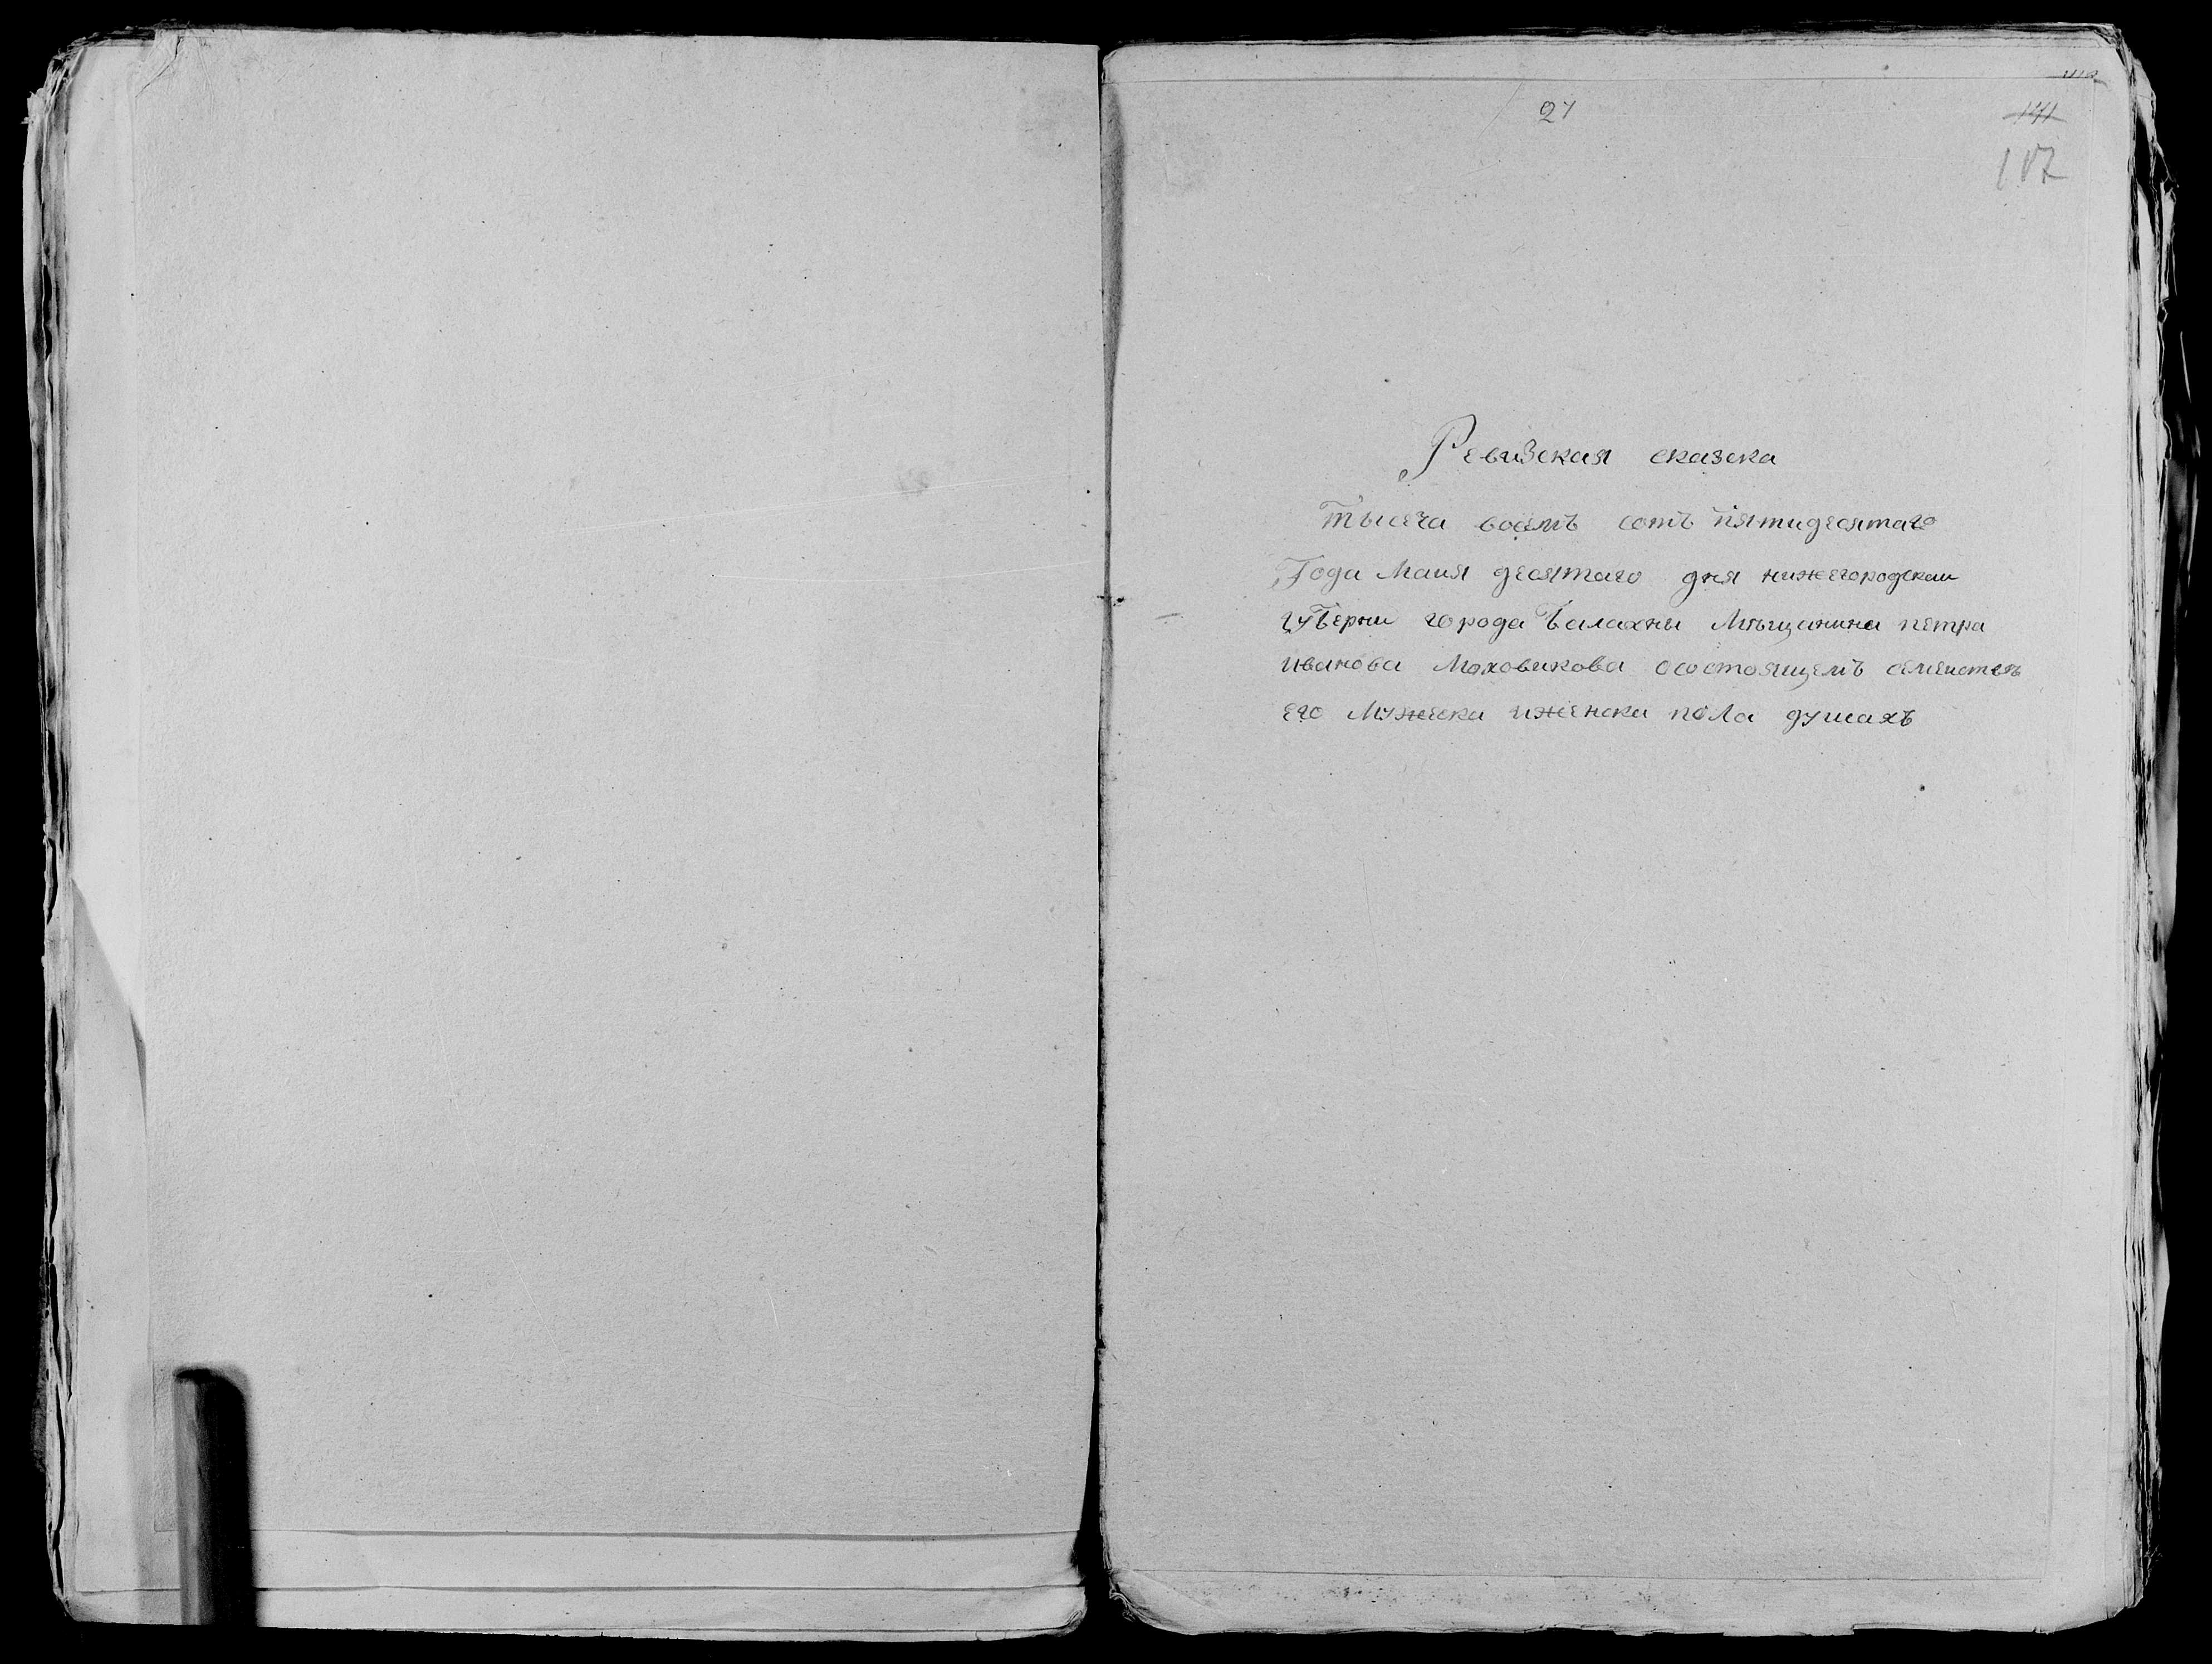 27
141
107
Ревизская сказска
Тысеча восемъ сотъ пятидесятаго
Года Маия десятаго дня нижегородскаи
губерни города Балахны Мѣщанина петра
иванова Маховикова осостоящемъ семеистве
его Мужеска иженска пола душахъ